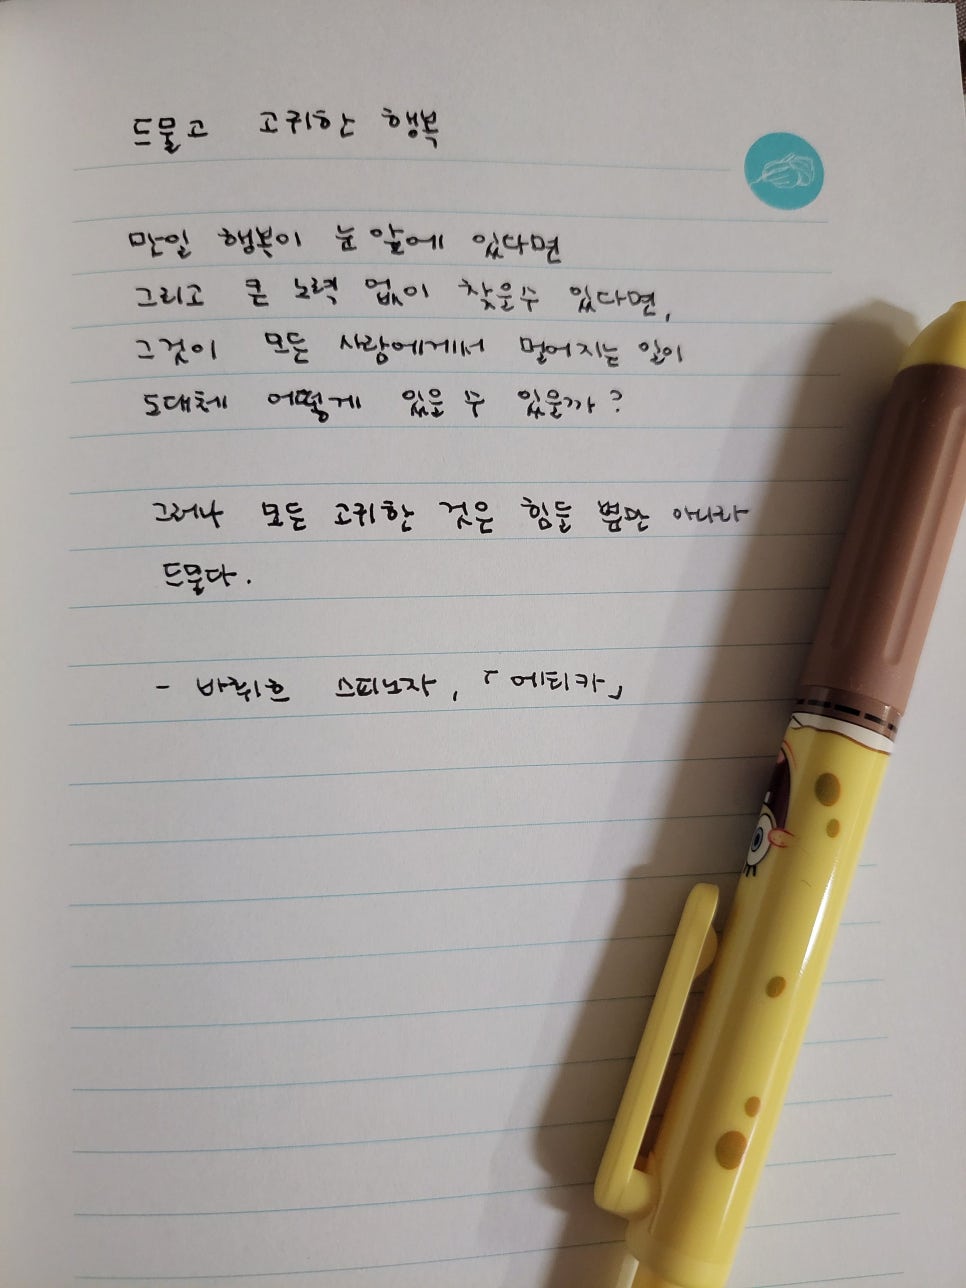 드물고 고귀한 행복
만일 행복이 눈 앞에 있다면
그리고 큰 노력 없이 찾을수 있다면,
그것이 모든 사람에게서 멀어지는 일이
도대체 어떻게 있을 수 있을까?
그러나 모든 고귀한 것은 힘들 뿐만 아니라
드물다.
- 바뤼흐 스피노자, 「에티카」